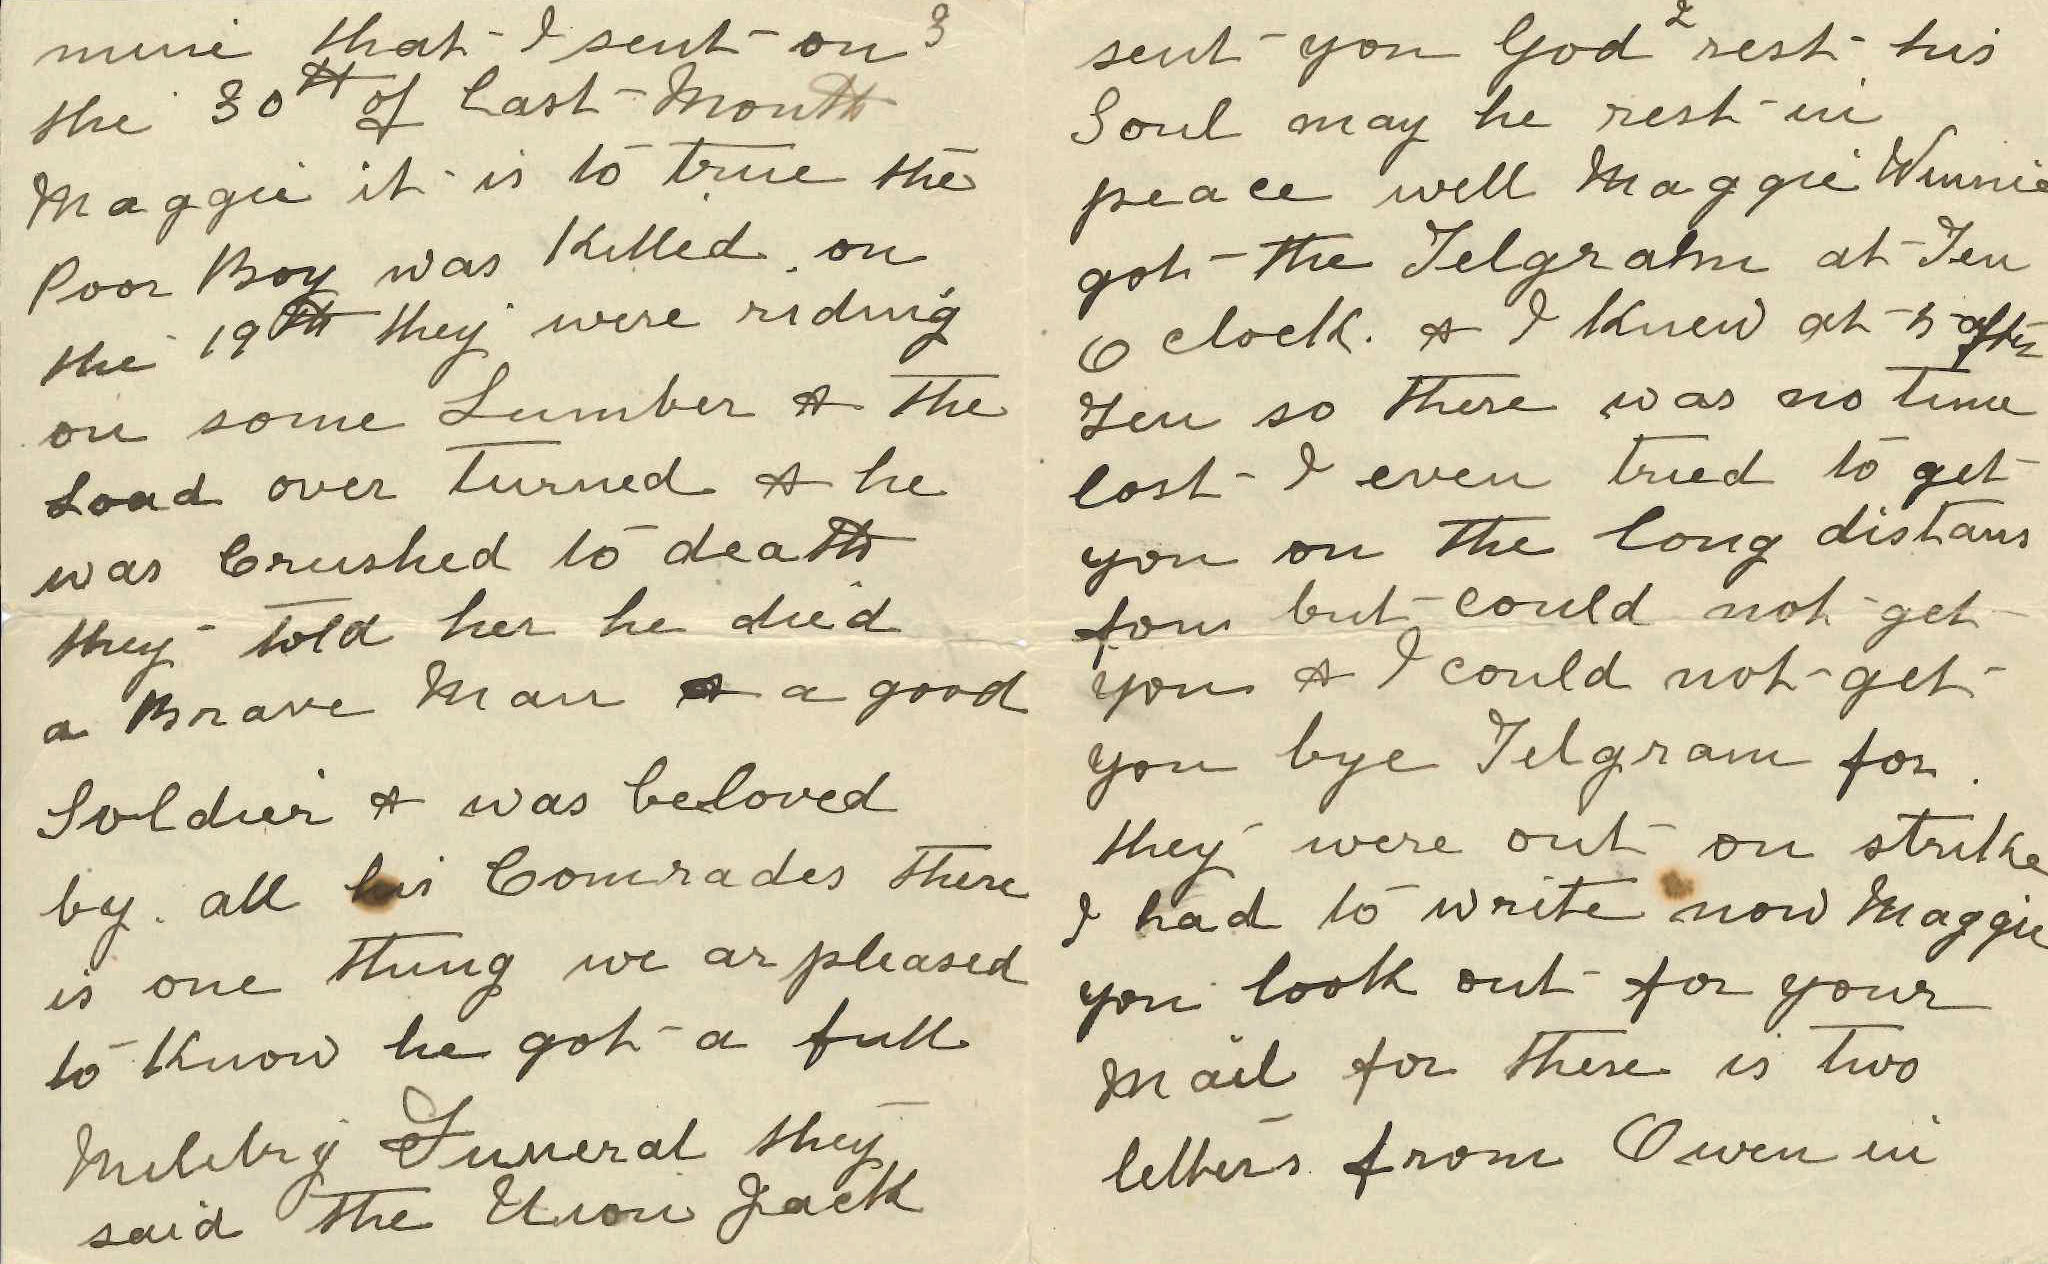 2
sent you God rest his
Soul may he rest in
peace well Maggie Winnie
got the Telgrahm at Ten
O clock. & I Knew at 5 after
Ten so there was no time
lost I even tried to get
you on the long distans
fon but could not get
you & I could not get
you bye Telgram for.
they were out on strike
I had to write now Maggie
you look out for your
Mail for there is two
letters from Owen in
3
mine that I sent on
the 30th of last Month
Maggie it is to true the
Poor Boy was Killed. on
the 19th they were riding
on some Lumber & the
Load over turned & he
was Crushed to death
they told her he died
a Brave Man & a good
Soldier & was beloved
by. all his Comrades there
is one thing we ar pleased
to Know he got a full
Miletry Funeral they
said the Union Jack